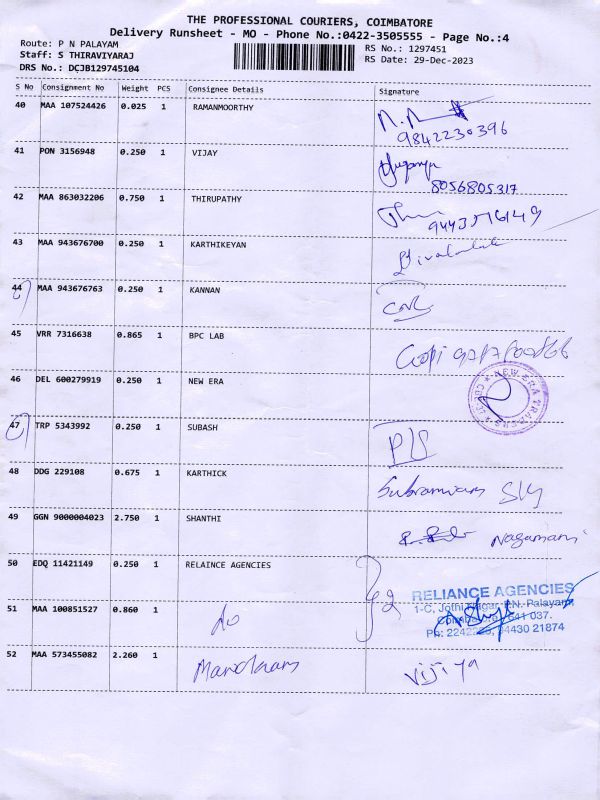 THE PROFESSIONAL COURIERS, COIMBATORE
Delivery Runsheet - MO - Phone No.:0422-3505555 - Page No.:4
Route: P N PALAYAM
Staff: S THIRAVIYARAJ
DRS No.: DCJB129745104
RS No.: 1297451
RS Date: 29-Dec-2023
S No Consignment No Weight PCS Consignee Details Signature
40 MAA 107524426 0.025 1 RAMANMOORTHY
9842230396
41 PON 3156948 0.250 1 VIJAY
8056805317
42 MAA 863032206 0.750 1 THIRUPATHY
9443576149
43 MAA 943676700 0.250 1 KARTHIKEYAN
44 MAA 943676763 0.250 1 KANNAN
45 VRR 7316638 0.865 1 BPC LAB
Gopi
46 DEL 600279919 0.250 1 NEW ERA
NEW ERA
47 TRP 5343992 0.250 1 SUBASH
48 DDG 229108 0.675 1 KARTHICK
49 GGN 9000004023 2.750 1 SHANTHI Nagamani
50 EDQ 11421149 0.250 1 RELAINCE AGENCIES
RELIANCE AGENCIES
1-C, Jothi Nagar, P.N. Palayam
641 037.
51 MAA 100851527 0.860 1 do
Ph: 94430 21874
52 MAA 573455082 2.260 1
Vijiya